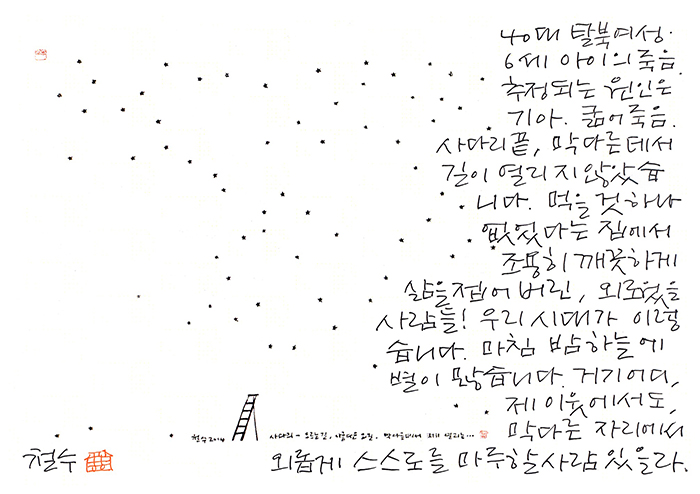 40대 탈북여성.
6세 아이의 죽음.
추정되는 원인은
기아. 굶어죽음.
사다리 끝, 막다른 데서
길이 열리지 않았습
니다. 먹을 것 하나
없었다는 집에서
조용히 깨끗하게
삶을 접어 버린, 외로웠을
사람들! 우리 시대가 이렇
습니다. 마침 밤하늘에
별이 많습니다. 거기 어디,
제 이웃에서도,
막다른 자리에서
외롭게 스스로를 마주할 사람 있을라.
철수 2019 사다리 - 오르는 길,
철수